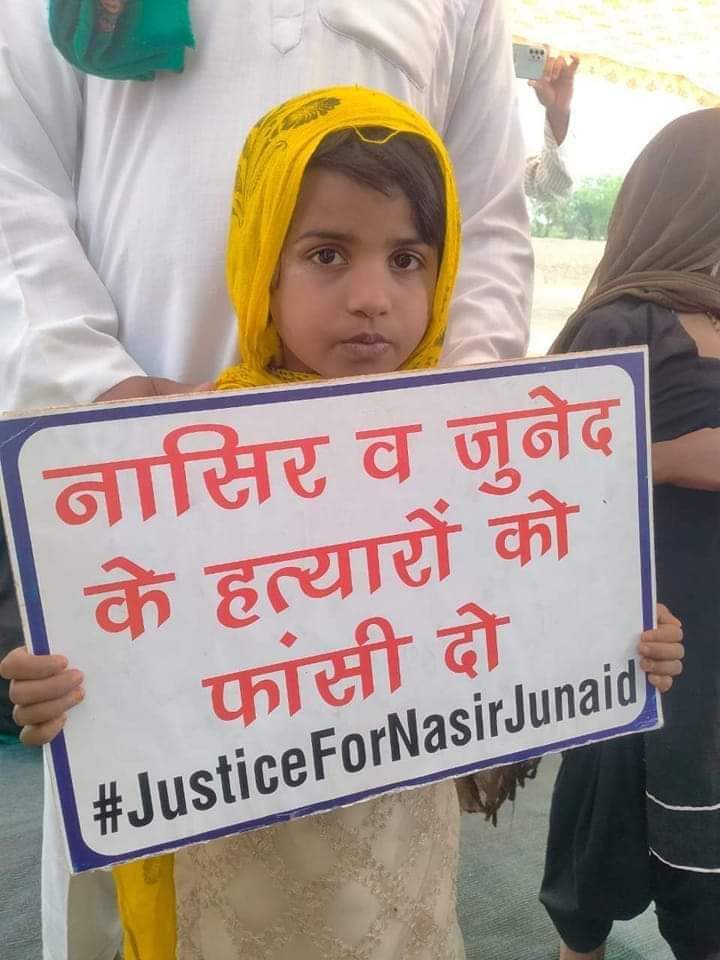 नासिर व जुनेद
के हत्यारों को
फांसी दो
#JusticeForNasirJunaid